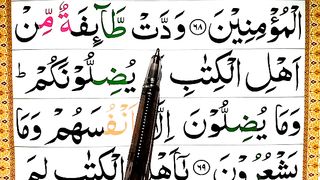 الْمُؤْمِنِيْنَ ﴿۶۸﴾ وَدَّتْ طَّآئِفَةٌ مِّنْ
اَهْلِ الْكِتٰبِ يُضِلُّوْنَكُمْ ؕ
وَمَا يُضِلُّوْنَ اِلَّاۤ اَنْفُسَهُمْ وَمَا
يَشْعُرُوْنَ ﴿۶۹﴾ يٰۤاَهْلَ الْكِتٰبِ لِمَ